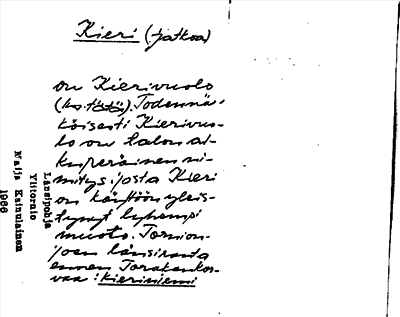 Kieri (jatkoa)
on Kierivuolo
(ks. tätä). Todennä-
köisesti Kierivuo-
lo on talon al-
kuperäinen ni-
mitys, josta Kieri
on käyttöön yleis-
tynyt lyhempi
muoto. Tornion-
joen länsiranta
ennen Torakankos-
vaa : Kieriniemi
Länsipohja
Ylitornio
Naija Kainulainen
1966